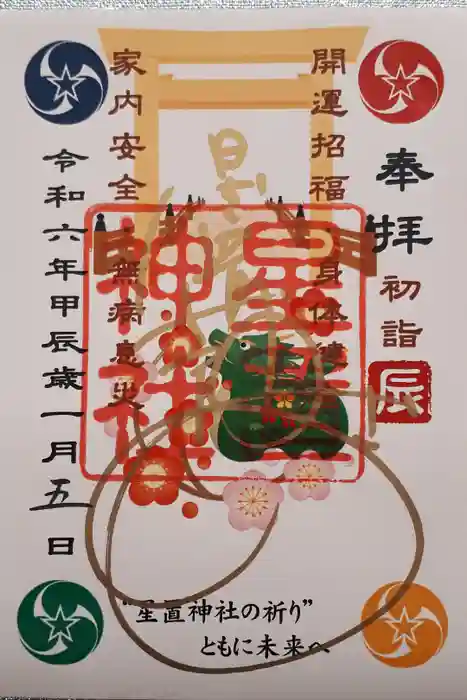 奉拝
初詣
辰
開運招福・身体健
家内安全・無病息災
星置神社
令和六年甲辰歳一月五日
"星置神社の祈り"
ともに未来へ